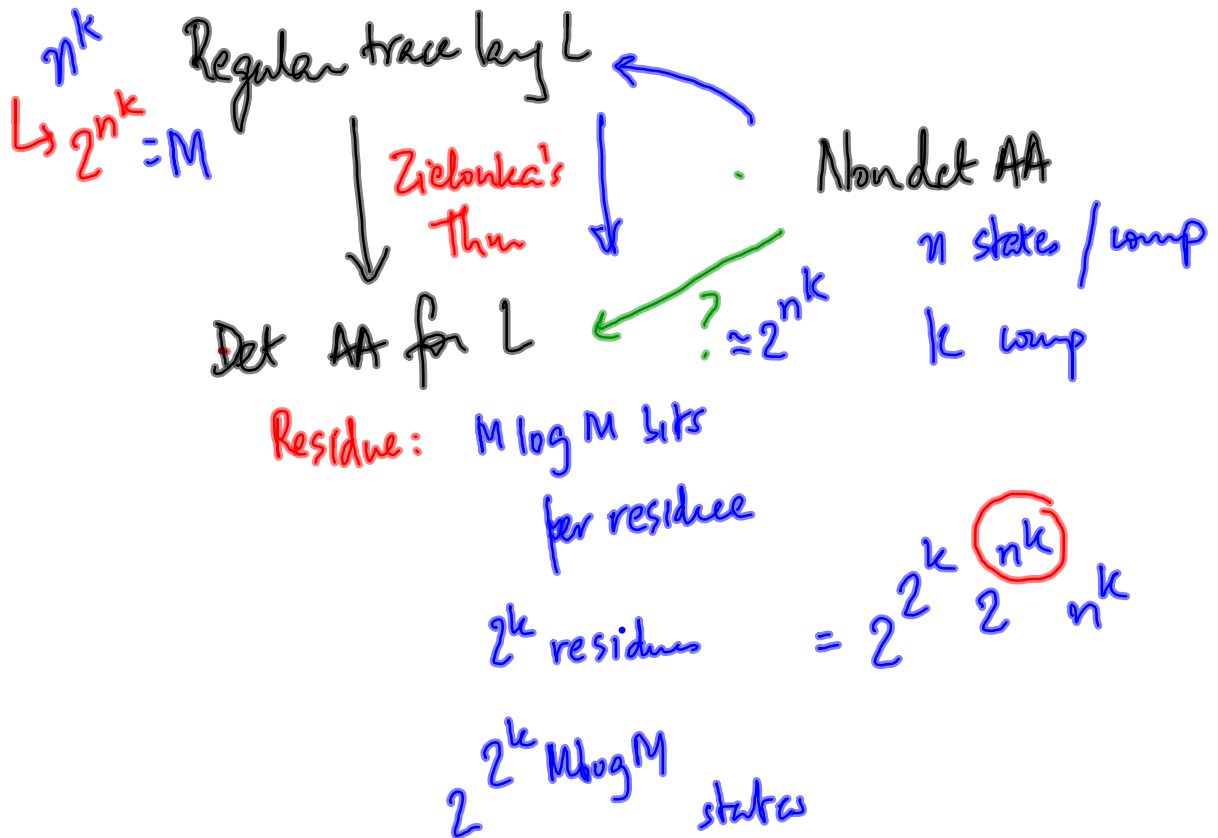 n^k
Regular trace lang L
↳ 2^{n^k} = M
Zielonka's
Thm
Nondet AA
n states / comp
k comp
Det AA for L
? ≈ 2^{n^k}
Residue: M log M bits
per residue
2^k residues
= 2^{2^k 2^{n^k} n^k}
2^{2^k M log M} states